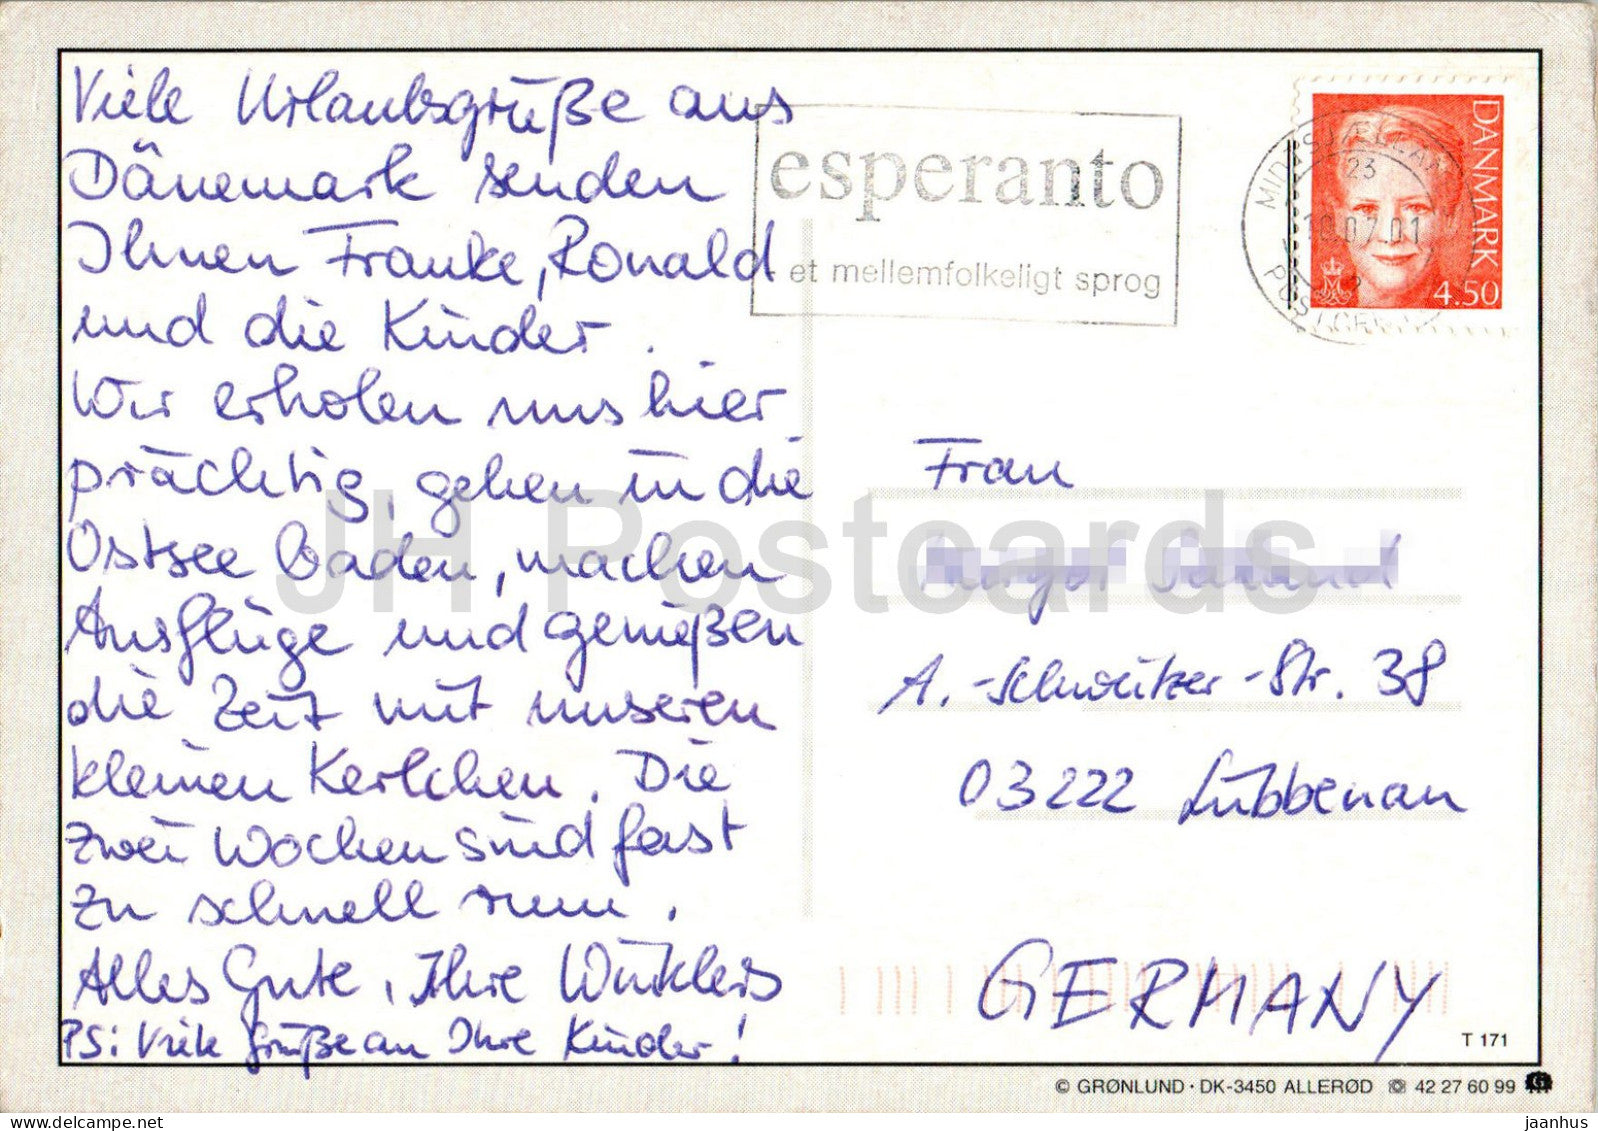 Viele Urlaubsgrüße aus
Dänemark senden
Ihnen Frauke, Ronald
und die Kinder.
Wir erholen uns hier
prächtig, gehen in die
Ostsee baden, machen
Ausflüge und genießen
die Zeit mit unseren
kleinen Kerlchen. Die
zwei Wochen sind fast
zu schnell rum.
Alles Gute, Ihre Winklers
PS: Viele Grüße an Ihre Kinder!
esperanto
- et mellemfolkeligt sprog
23
10.07.01
DANMARK
4.50
Frau
A.-Schweitzer-Str. 38
03222 Lübbenau
GERMANY
T 171
© GRØNLUND · DK-3450 ALLERØD ☏ 42 27 60 99
JH Postcards
www.delcampe.net
jaanhus